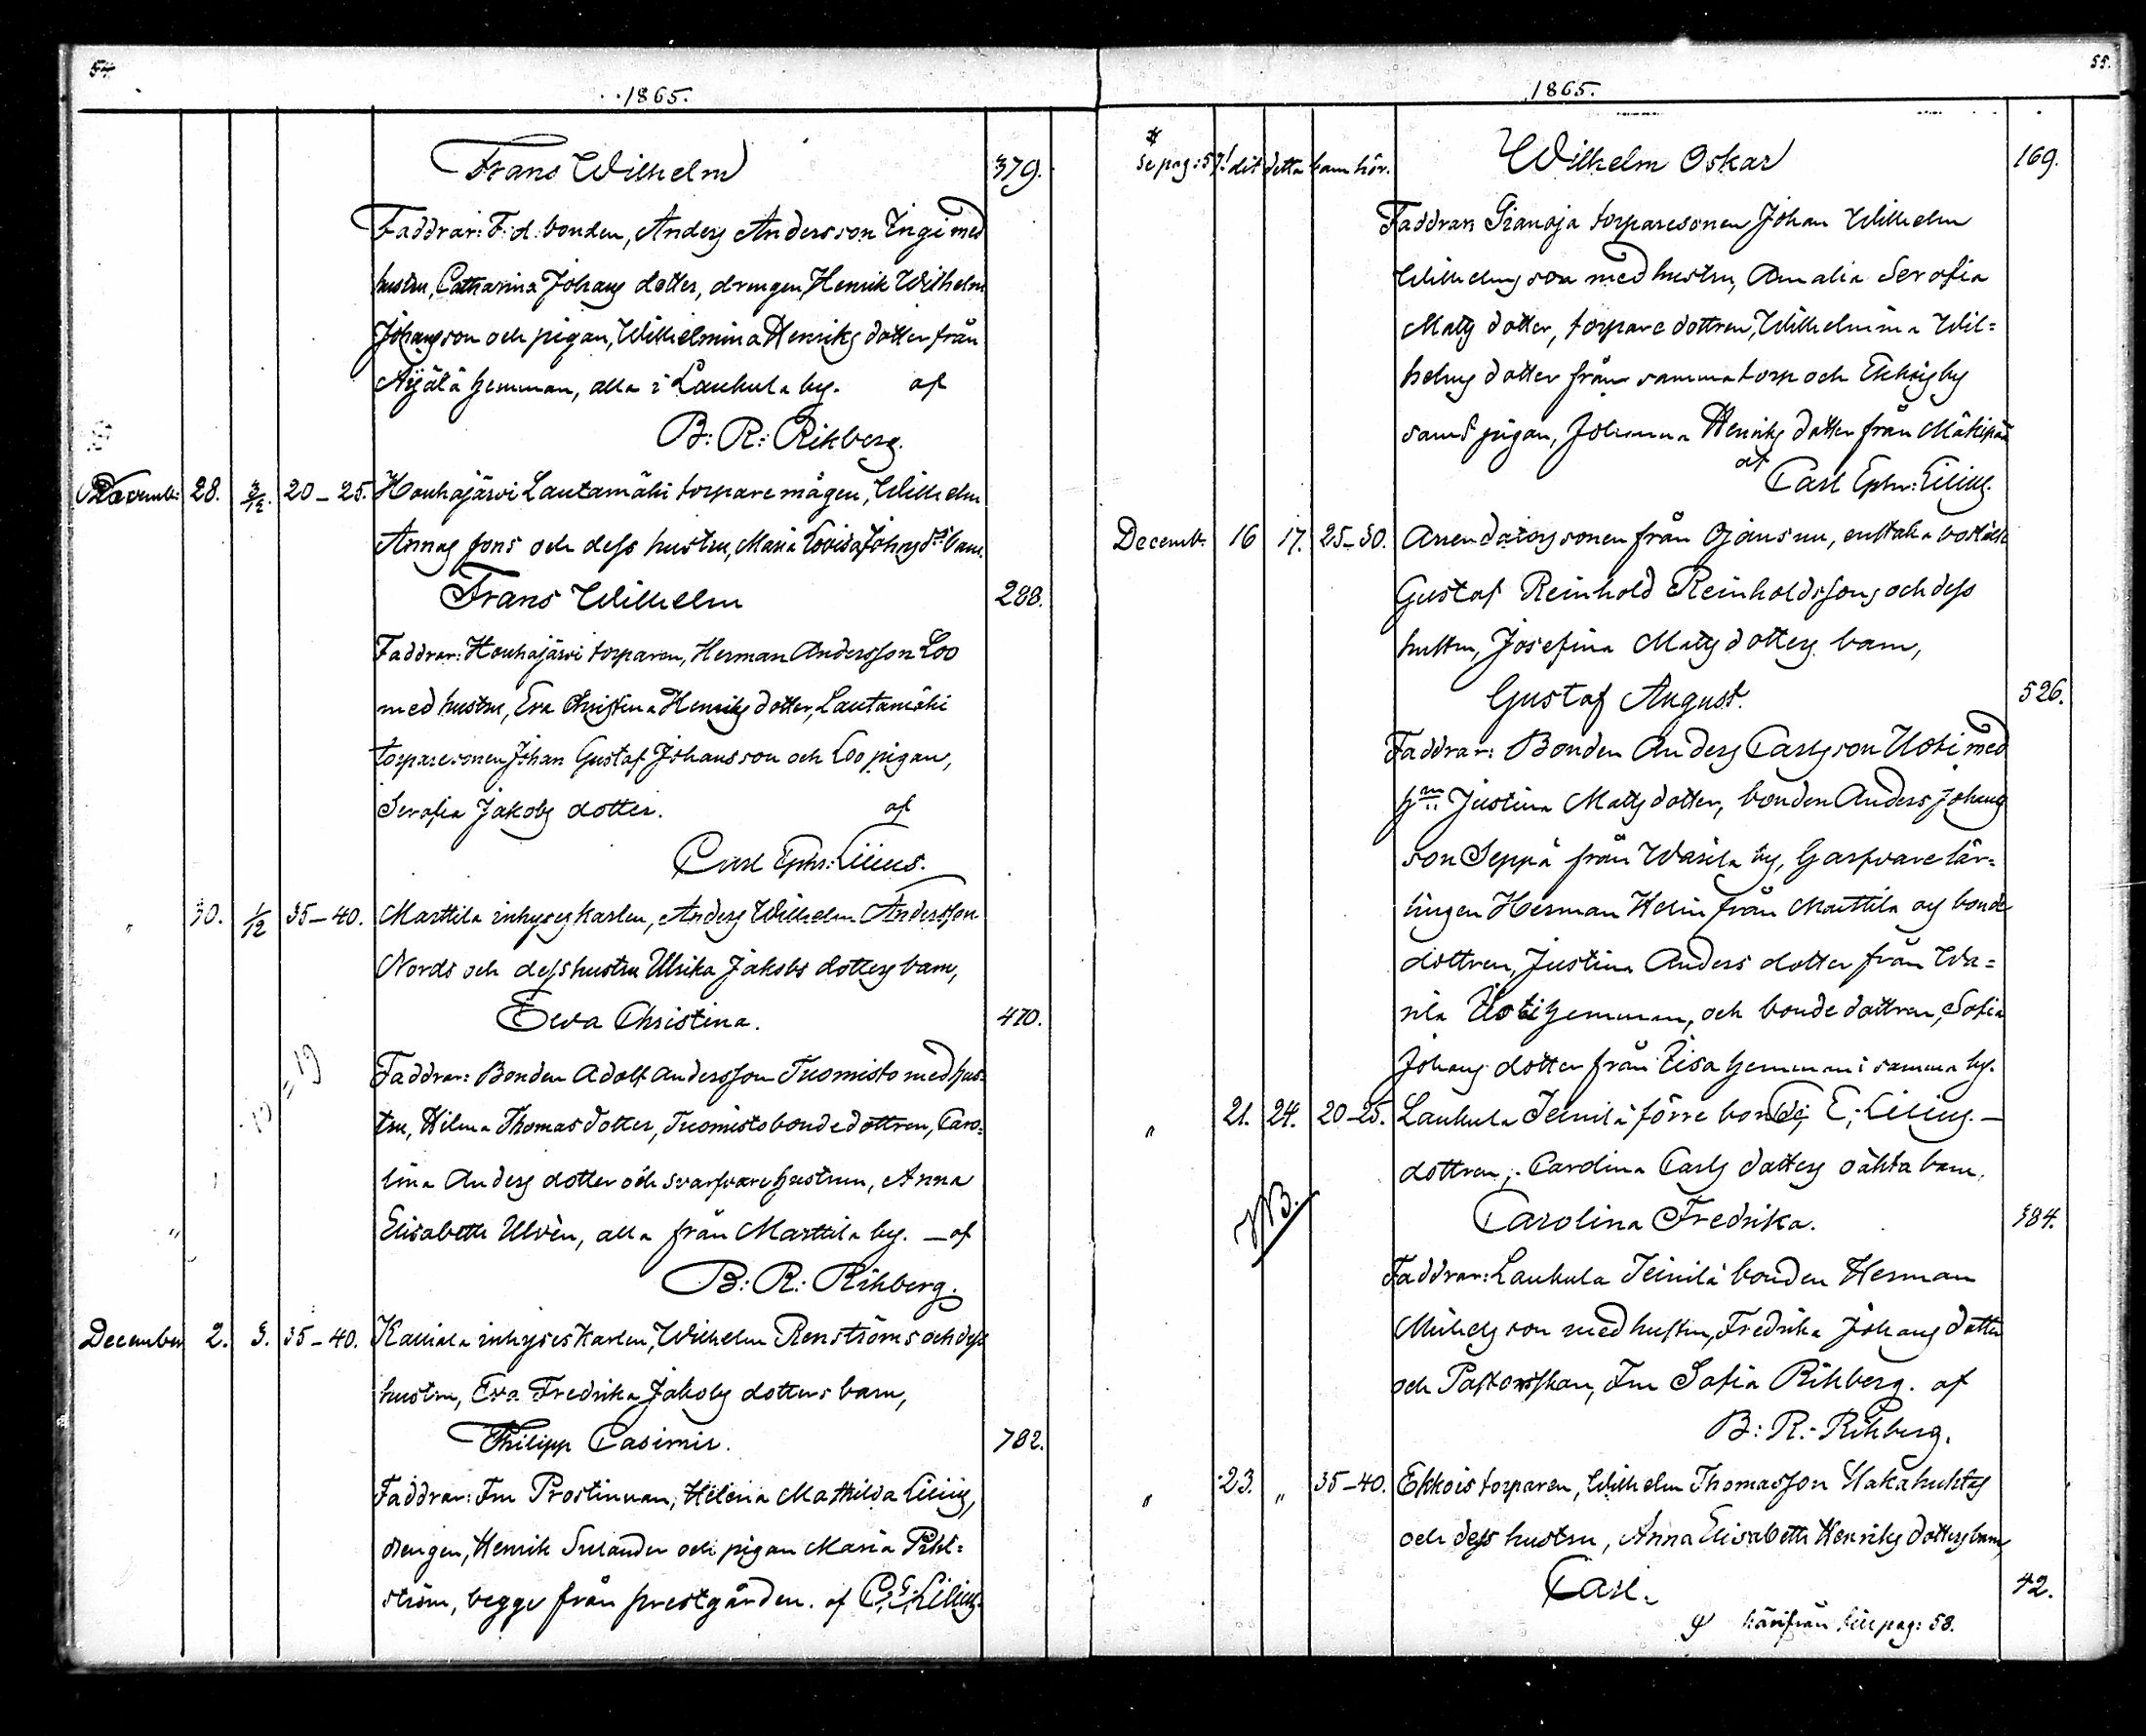 54.
1865.
Frans Wilhelm 379.
Faddrar: F. d. bonden, Anders Andersson Ingi med
hustru, Catharina Johans dotter, drengen, Henrik Wilhelm
Johansson och pigan, Wilhelmina Henriks dotter från
Äijälä hemman, alla i Laukula by. af
B: R: Rihberg.
Novemb: 28. 3/12. 20-25. Houhajärvi Lautamäki torpare mågen, Wilhelm
Annas sons och dess hustru, Maria Lovisa Johns drs barn.
Frans Wilhelm 288.
Faddrar: Houhajärvi torparen, Herman Andersson Loo
med hustru, Eva Christina Henriks dotter, Lautamäki
torparesonen Johan Gustaf Johansson och Loo pigan,
Serafia Jakobs dotter. af
Carl Ephr: Lilius.
" 30. 1/12 35-40. Marttila inhyses karlen, Anders Wilhelm Andersson
Nords och dess hustru Ulrika Jakobs dotters barn,
Eva Christina. 470.
Faddrar: Bonden Adolf Andersson Tuomisto med hus-
tru, Hilma Thomas dotter, Tuomisto bonde dottren, Caro-
lina Anders dotter och svarfvare hustrun, Anna
Elisabeth Ulvèn, alla från Marttila by. _ af
B: R: Rihberg.
December 2. 3. 35-40. Kalliala inhyses karlen, Wilhelm Renströms och dess
hustru, Eva Fredrika Jakobs dotters barn,
Philipp Casimir. 782.
Faddrar: Fru Prostinnan, Helena Mathilda Lilius,
drengen, Henrik Sulander och pigan Maria Pihl-
ström, begge från prestgården. af C: E: Lilius.
55.
1865.
Se pag: 57! dit detta barn hör. Wilhelm Oskar 169.
Faddrar: torparesonen Johan Wilhelm
Wilhelmsson med hustru, Amalia Serafia
Matts dotter, torpare dottren, Wilhelmina Wil=
helms dotter från samma torp och Ekkois by
samt pigan, Johanna Henriks dotter från Mäkipää
af Carl Ephr: Lilius.
Decemb. 16 17. 25-30. Arrendators sonen från Ojansuu, enstaka boställe
Gustaf Reinhold Reinholdssons och dess
hustru, Josefina Matts dotters barn,
Gustaf August. 526.
Faddrar: Bonden Anders Carlsson Uoti med
Justina Matts dotter, bonden Anders Johans
son Seppä från Warila by, Garfvare lär-
lingen Herman Helin från Marttila och bonde
dottren, Justina Anders dotter från Wa=
rila Uoti hemman, och bonde dottren, Sofia
Johans dotter från Iisa hemman i samma by.
" 21. 24. 20-25. Laukula Teinilä förre bonde C; E; Lilius. _
dottren, Carolina Carls dotters oäkta barn.
NB.
Carolina Fredrika. 384.
Faddrar: Laukula Teinilä bonden Herman
Michelsson med hustru, Fredrika Johans dotter
och Pastorskan, Fru Sofia Rihberg. af
B: R: Rihberg.
" 23. " 35-40. Ekkois torparen, Wilhelm Thomasson Hakahuhtas
och dess hustru, Anna Elisabeth Henriks dotters barn,
Carl. 42.
härifrån till pag: 58.